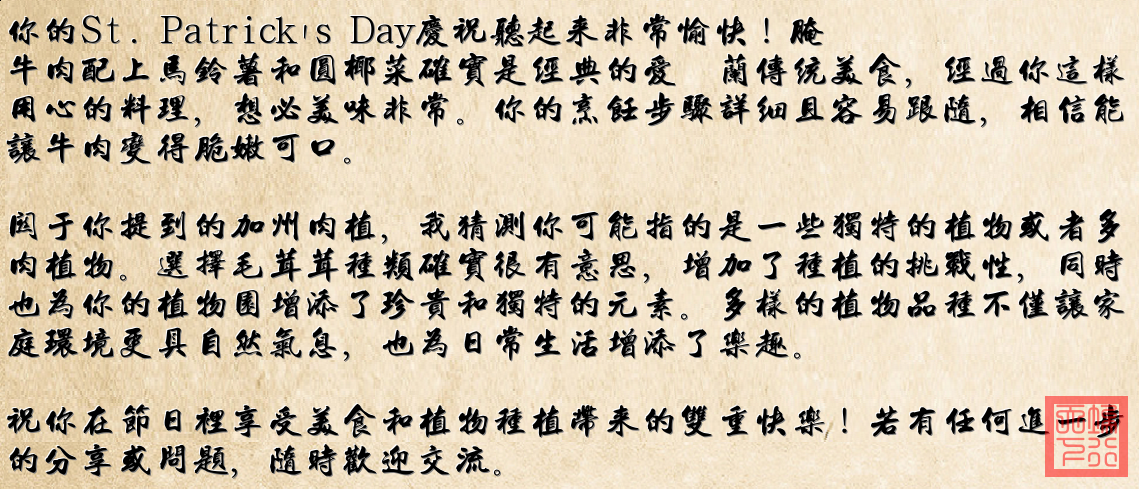 你的St. Patrick's Day慶祝聽起来非常愉快！腌
牛肉配上馬鈴薯和圓椰菜確實是經典的愛 蘭傳统美食，經過你這樣
用心的料理，想必美味非常。你的烹飪步驟詳細且容易跟隨，相信能
讓牛肉變得脆嫩可口。
関于你提到的加州肉植，我猜測你可能指的是一些獨特的植物或者多
肉植物。選擇毛茸茸種類確實很有意思，增加了種植的挑戰性，同時
也為你的植物園增添了珍貴和獨特的元素。多樣的植物品種不僅讓家
庭環境更具自然氣息，也為日常生活增添了樂趣。
祝你在節日裡享受美食和植物種植帶来的雙重快樂！若有任何進一步
的分享或問題，隨時歡迎交流。